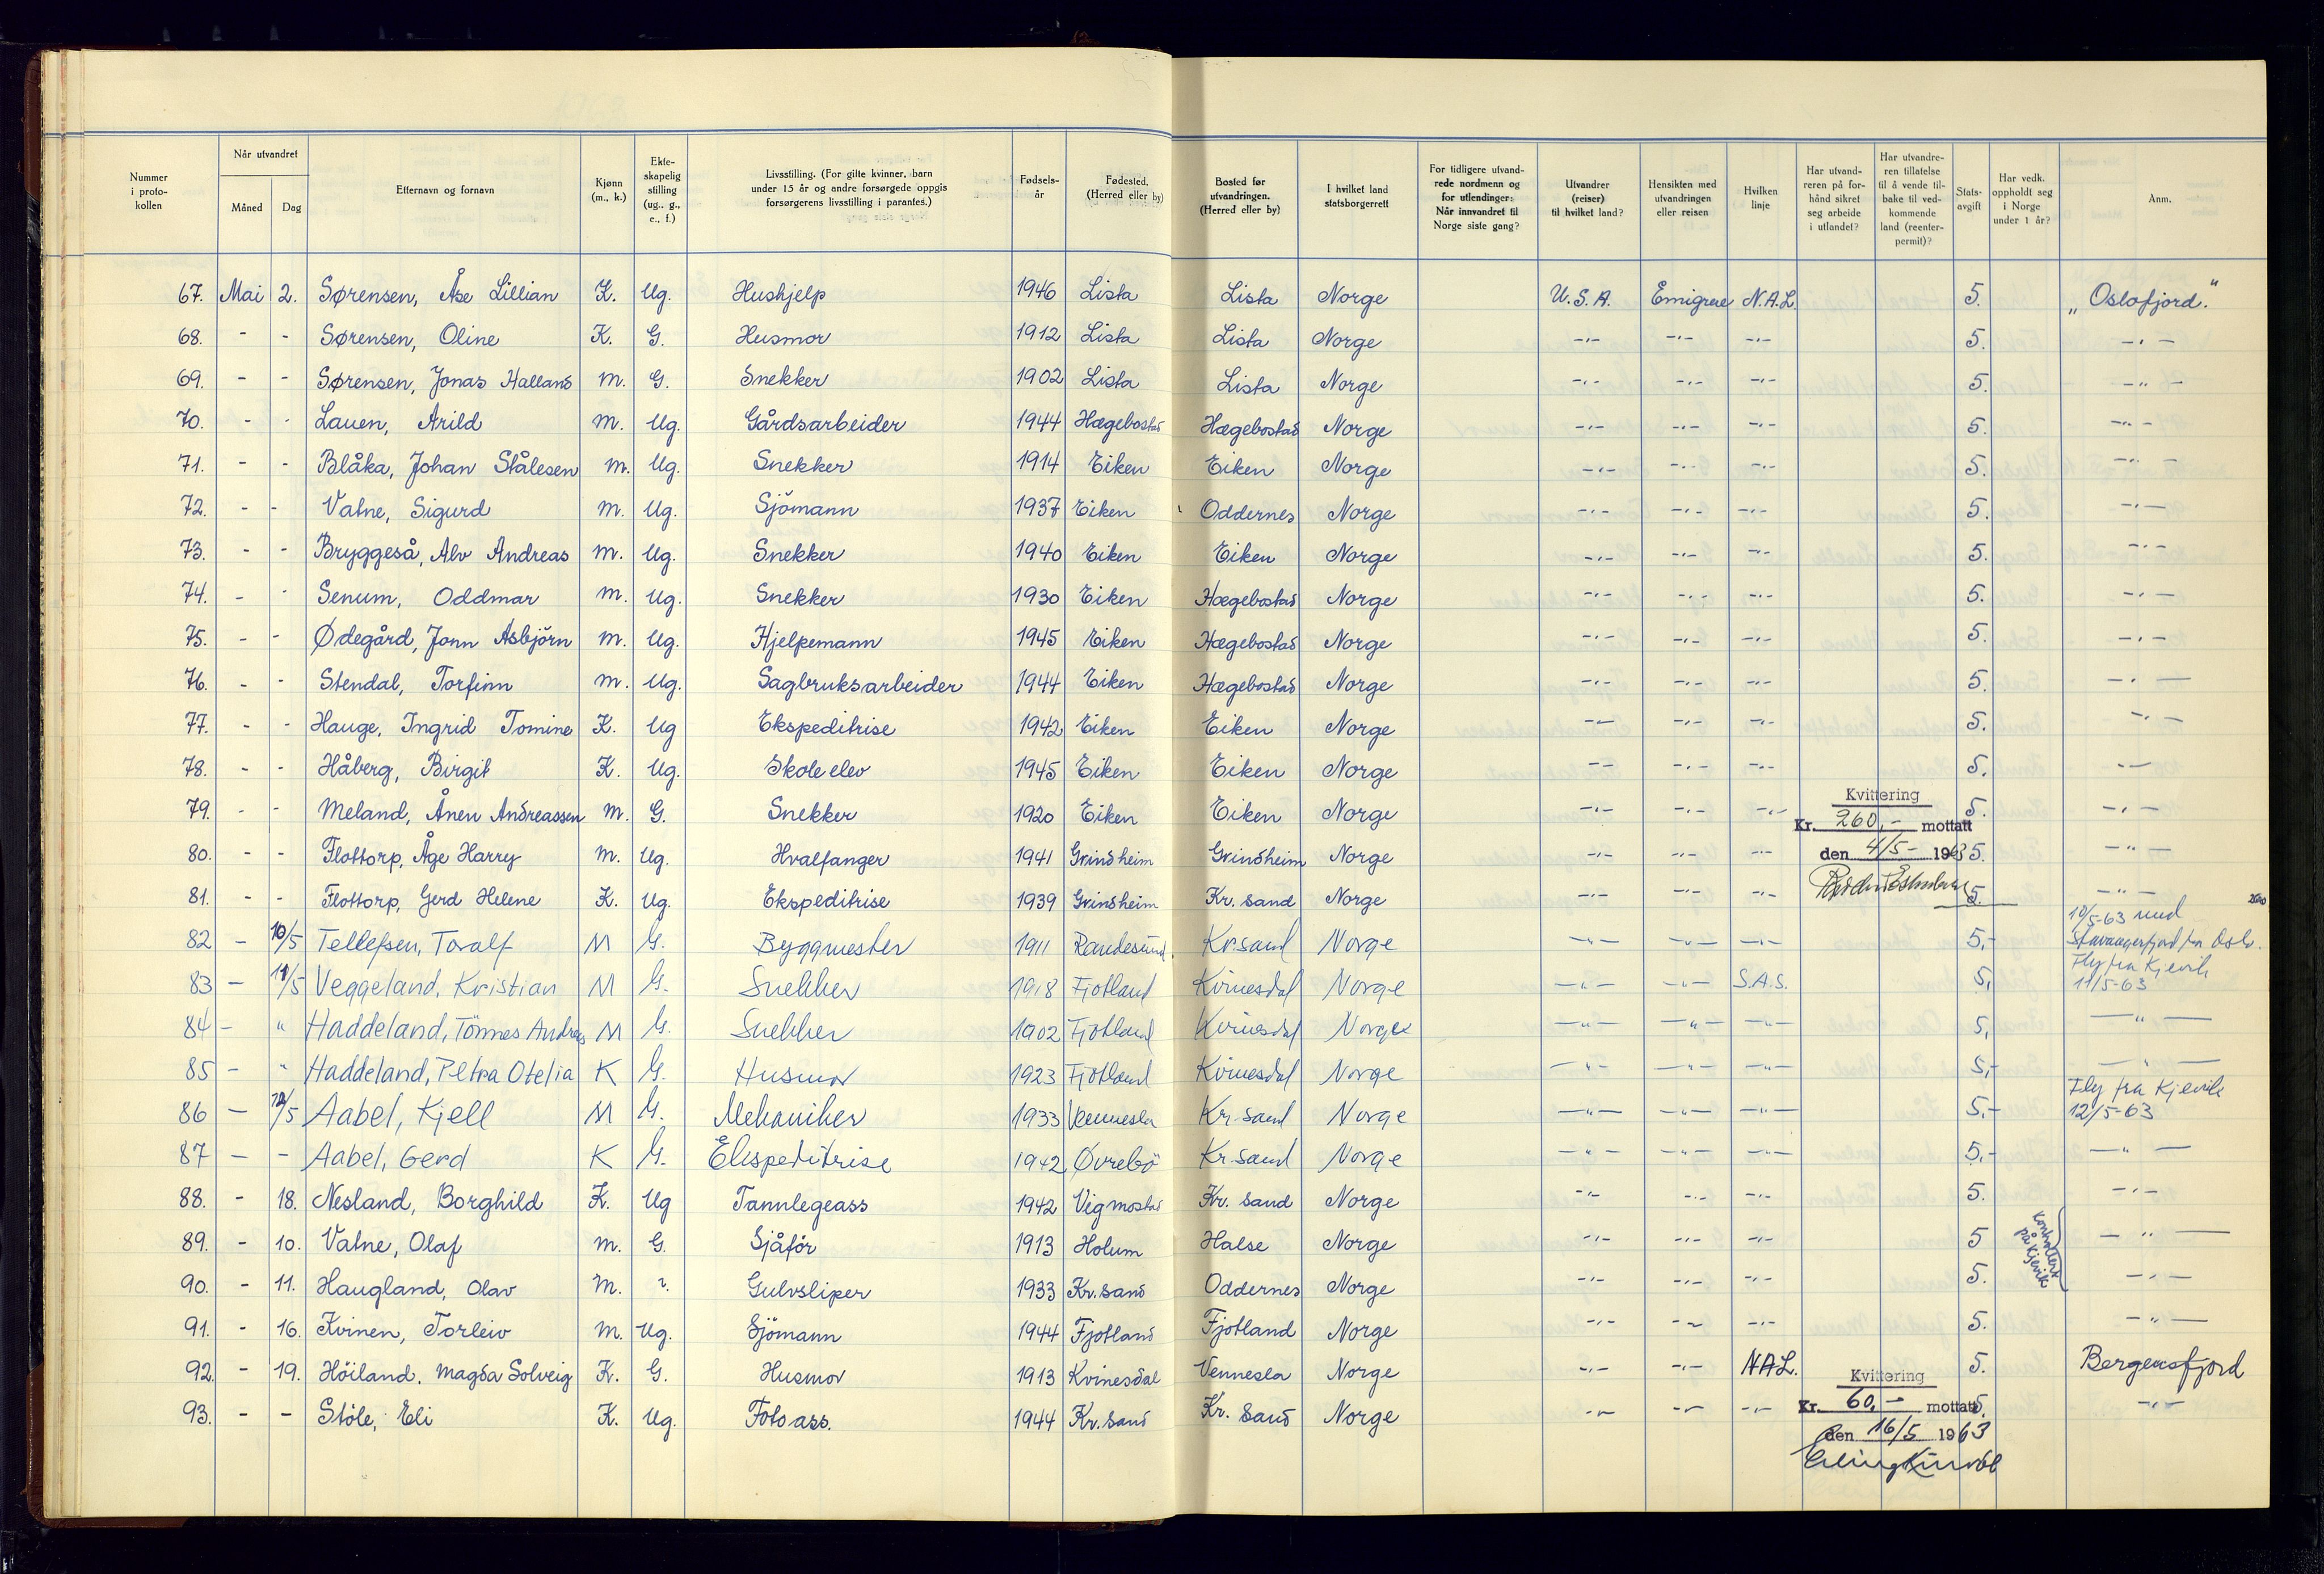 Nummer i proto-kollen | Når utvandret: Måned | Dag | Etternavn og fornavn | Kjønn (m., k.) | Ekte-skapelig stilling (ug., g., e., f.) | Livsstilling. (For gifte kvinner, barn under 15 år og andre forsørgede oppgis forsørgerens livsstilling i parantes.) | Fødsels-år | Fødested. (Herred eller by) | Bosted før utvandringen. (Herred eller by) | I hvilket land statsborgerrett | For tidligere utvand-rede nordmenn og for utlendinger: Når innvandret til Norge siste gang? | Utvandrer (reiser) til hvilket land? | Hensikten med utvandringen eller reisen | Hvilken linje | Har utvand-reren på for-hånd sikret seg arbeide i utlandet? | Har utvandre-ren tillatelse til å vende til-bake til ved-kommende land (reenter-permit)? | Stats-avgift | Har vedk. oppholdt seg i Norge under 1 år? | Anm.
67. Mai 2. Sørensen, Åse Lillian K. Ug. Hushjelp 1946 Lista Lista Norge U.S.A. Emigrere N.A.L. 5. "Oslofjord."
68. - - Sørensen, Oline K. G. Husmor 1912 Lista Lista Norge -"- -"- -"- 5. -"-
69. - - Sørensen, Jonas Halland M. G. Snekker 1902 Lista Lista Norge -"- -"- -"- 5. -"-
70. - - Lauen, Arild M. Ug. Gårdsarbeider 1944 Hægebostad Hægebostad Norge -"- -"- -"- 5. -"-
71. - - Blåka, Johan Stålesen M. Ug. Snekker 1914 Eiken Eiken Norge -"- -"- -"- 5. -"-
72. - - Vatne, Sigurd M. Ug. Sjömann 1937 Eiken Oddernes Norge -"- -"- -"- 5. -"-
73. - - Bryggeså, Alv Andreas M. Ug. Snekker 1940 Eiken Eiken Norge -"- -"- -"- 5. -"-
74. - - Senum, Oddmar M. Ug. Snekker 1930 Eiken Hægebostad Norge -"- -"- -"- 5. -"-
75. - - Ødegård, Jonn Asbjörn M. Ug. Hjelpemann 1945 Eiken Hægebostad Norge -"- -"- -"- 5. -"-
76. - - Stendal, Torfinn M. Ug. Sagbruksarbeider 1944 Eiken Hægebostad Norge -"- -"- -"- 5. -"-
77. - - Hauge, Ingrid Tomine K. Ug Ekspeditrise 1942 Eiken Eiken Norge -"- -"- -"- 5. -"-
78. - - Håberg, Birgit K. Ug. Skole elev 1945 Eiken Eiken Norge -"- -"- -"- 5. -"-
79. - - Meland, Ånen Andreassen M. G. Snekker 1920 Eiken Eiken Norge -"- -"- -"- 5. -"-
Kvittering
Kr. 260,- mottatt
80. - - Flottorp, Åge Harry M. Ug. Hvalfanger 1941 Grindsheim Grindsheim Norge -"- -"- -"- 5. -"-
den 4/5- 1963
81. - - Flottorp, Gerd Helene K. Ug. Ekspeditrise 1939 Grindsheim Kr. sand Norge -"- -"- -"- 5. -"-
82 - 10/5 Tellefsen, Toralf M G. Byggmester 1911 Randesund Kr.sand Norge -"- -"- -"- 5,- 10/5-63 med Stavangerfjord fra Oslo.
83 - 11/5 Veggeland, Kristian M G. Snekker 1918 Fjotland Kvinesdal Norge -"- -"- S.A.S. 5, Fly fra Kjevik 11/5-63
84 - " Haddeland, Tönnes Andreas M G. Snekker 1902 Fjotland Kvinesdal Norge -"- -"- -"- 5, -"-
85 - " Haddeland, Petra Otelia K G. Husmor 1923 Fjotland Kvinesdal Norge -"- -"- -"- 5,- -"-
86 - 12/5 Aabel, Kjell M G. Mekaniker 1933 Vennesla Kr.sand Norge -"- -"- -"- 5,- Fly fra Kjevik 12/5-63
87 - - Aabel, Gerd K G. Ekspeditrise 1942 Øvrebö Kr.sand Norge -"- -"- -"- 5,- -"-
88. - 18. Nesland, Borghild K. Ug Tannlegeass 1942 Vigmostad Kr. sand Norge -"- -"- -"- 5. -"-
89. - 10. Vatne, Olaf M. G. Sjåför 1913 Holum Halse Norge -"- -"- -"- 5 -"-
90. - 11. Haugland, Olav M. ? Gulvsliper 1933 Kr.sand Oddernes Norge -"- -"- -"- 5. -"-
Kontrollert på Kjevik
91. - 16. Kvinen, Torleiv M. Ug. Sjömann 1944 Fjotland Fjotland Norge -"- -"- -"- 5. -"-
92. - 19. Höiland. Magda Solveig K. G. Husmor 1913 Kvinesdal Vennesla Norge -"- -"- N.A.L. 5. Bergensfjord
Kvittering
93. - - Stöle, Eli K. Ug. Foto ass. 1944 Kr.sand Kr. Sand Norge -"- -"- -"- 5. -"-
Kr. 60,- mottatt
den 16/5 1963